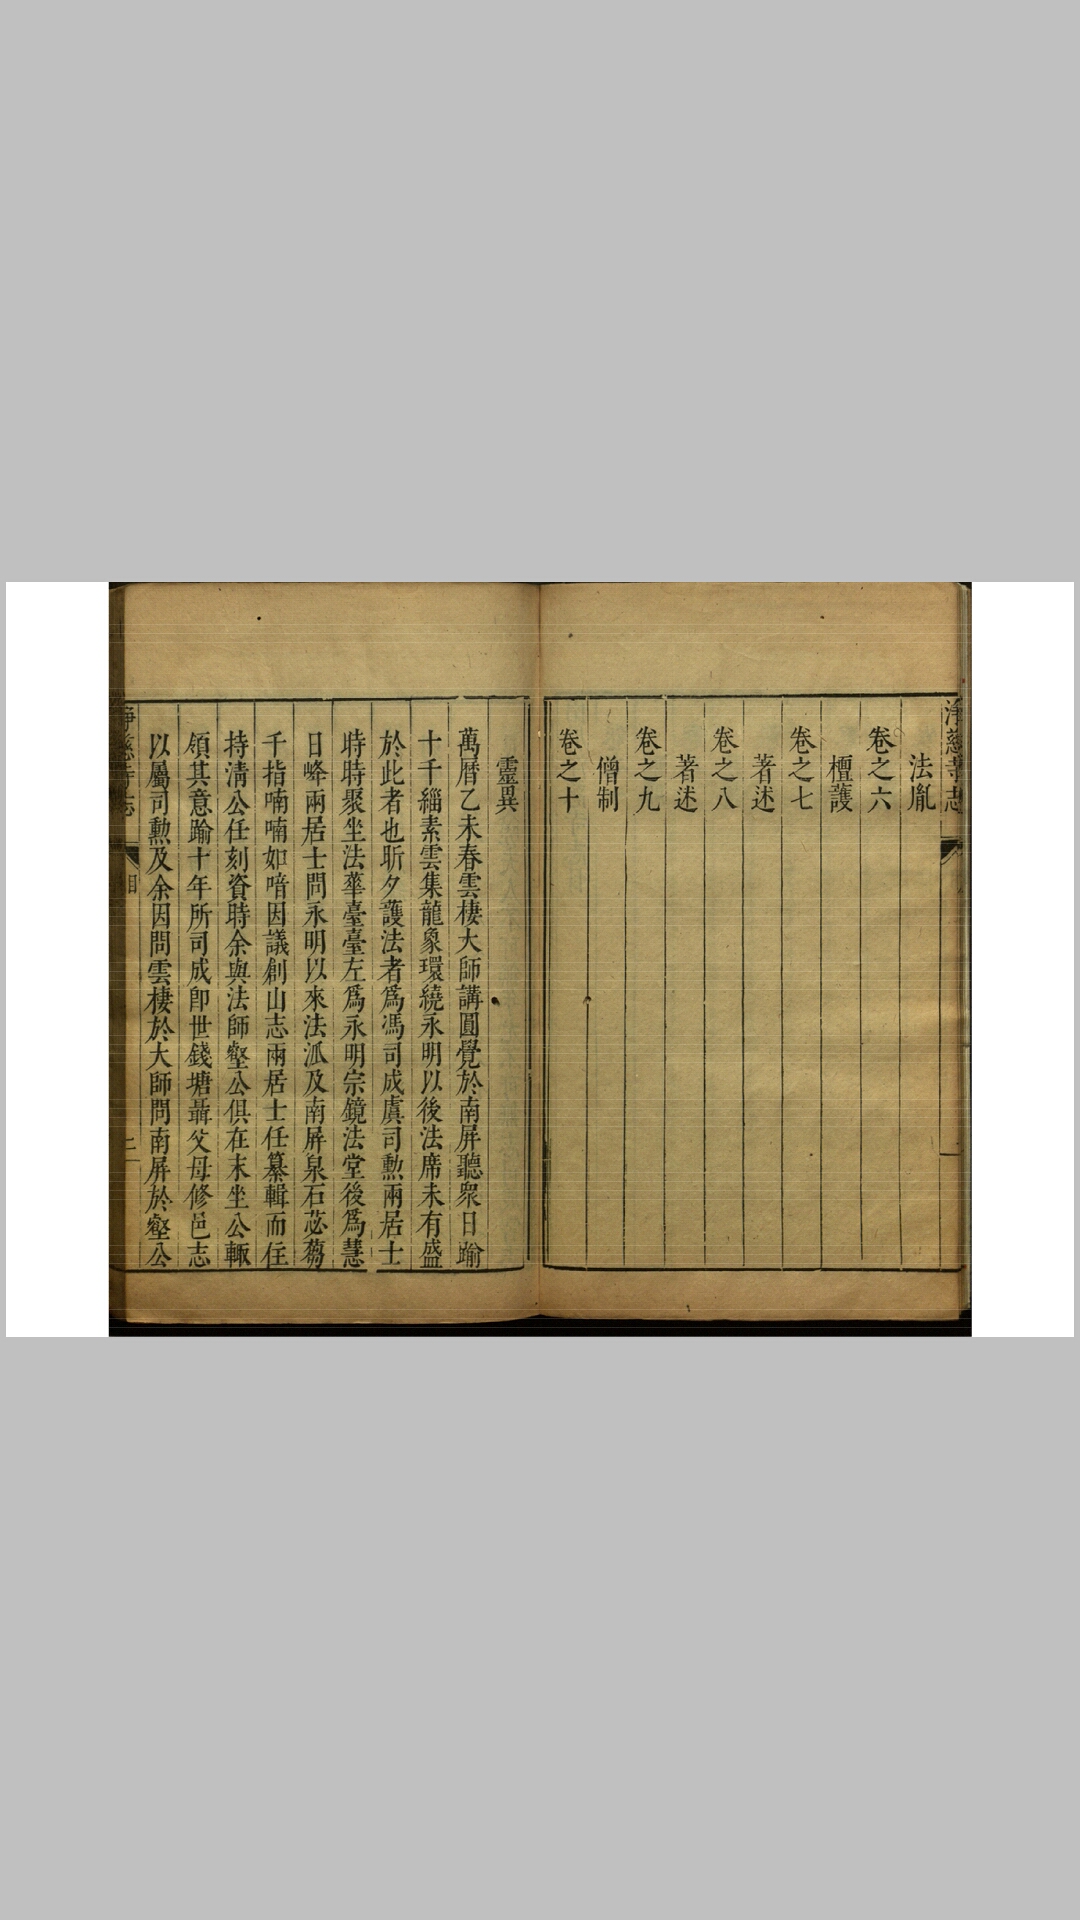 淨慈寺志
法胤
卷之六
檀護
卷之七
著述
卷之八
著述
卷之九
僧制
卷之十
靈異
萬曆乙未春雲棲大師講圓覺於南屏聽衆日踰
十千緇素雲集龍象環繞永明以後法席未有盛
於此者也昕夕護法者爲馮司成虞司勲兩居士
時時聚坐法華臺臺左爲永明宗鏡法堂後爲慧
日峰兩居士問永明以來法派及南屏泉石苾蒭
千指喃喃如喑因議創山志兩居士任纂輯而任
持清公任刻資時余與法師壑公俱在末坐公輒
領其意踰十年所司成卽世錢塘聶父母修邑志
以屬司勲及余因問雲棲於大師問南屏於壑公
淨慈寺志
目
二